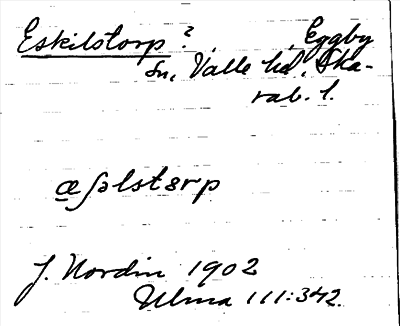 Eskilstorp?, Eggby
sn, Valle hd, Ska-
rab. l.
æʃəlstərp
J. Nordin 1902
Ulma 111:342.